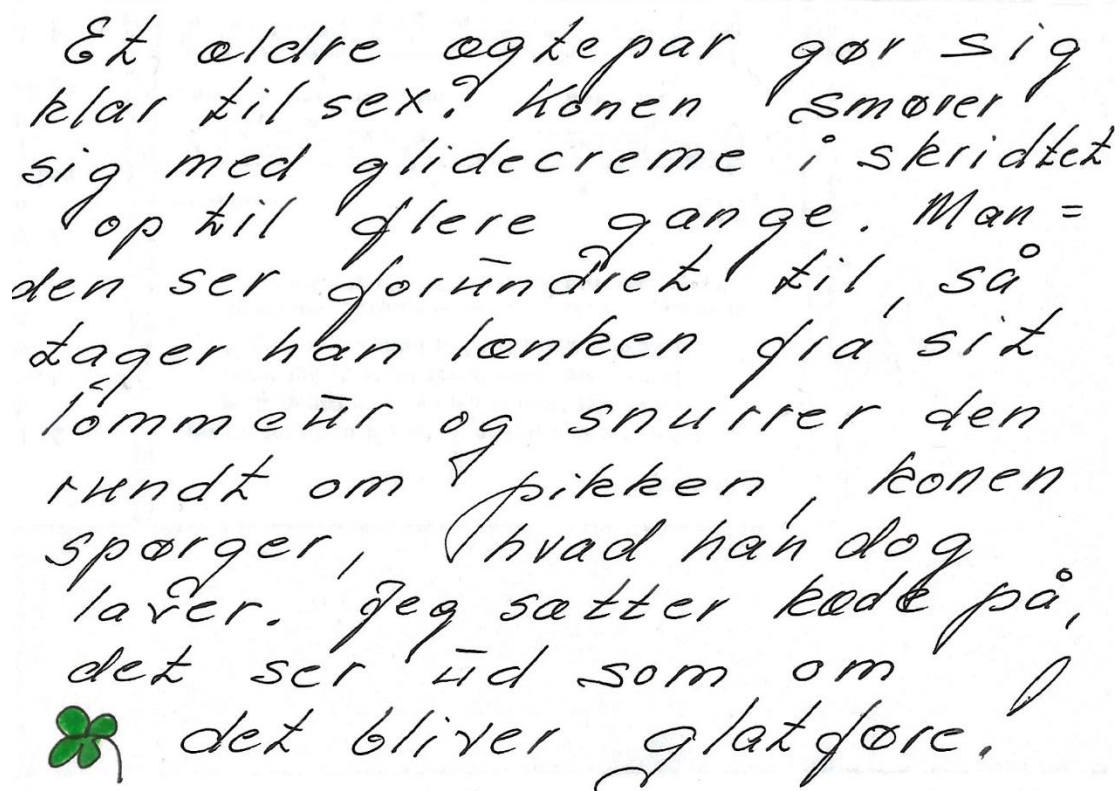 Et ældre ægtepar gør sig
klar til sex? Konen smører
sig med glidecreme i skridtet
op til flere gange. Man=
den ser forūndret til, så
tager han lænken fra sit
lommeūr og snurrer den
rundt om pikken, konen
spørger, hvad han dog
laver. Jeg sætter kæde på,
det ser ūd som om
det bliver glatføre.